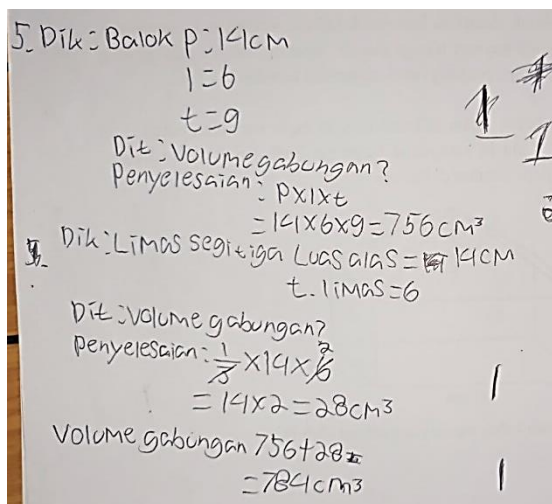 5. Dik: Balok p: 14cm
l=6
t=9
Dit: Volume gabungan?
Penyelesaian: pxlxt
=14x6x9=756cm³
Dik: Limas segitiga Luas alas= 14cm
t. limas=6
Dit: Volume gabungan?
Penyelesaian: 1/3 x14x6 2
= 14x2=28cm³
Volume gabungan 756+28=
=784cm³